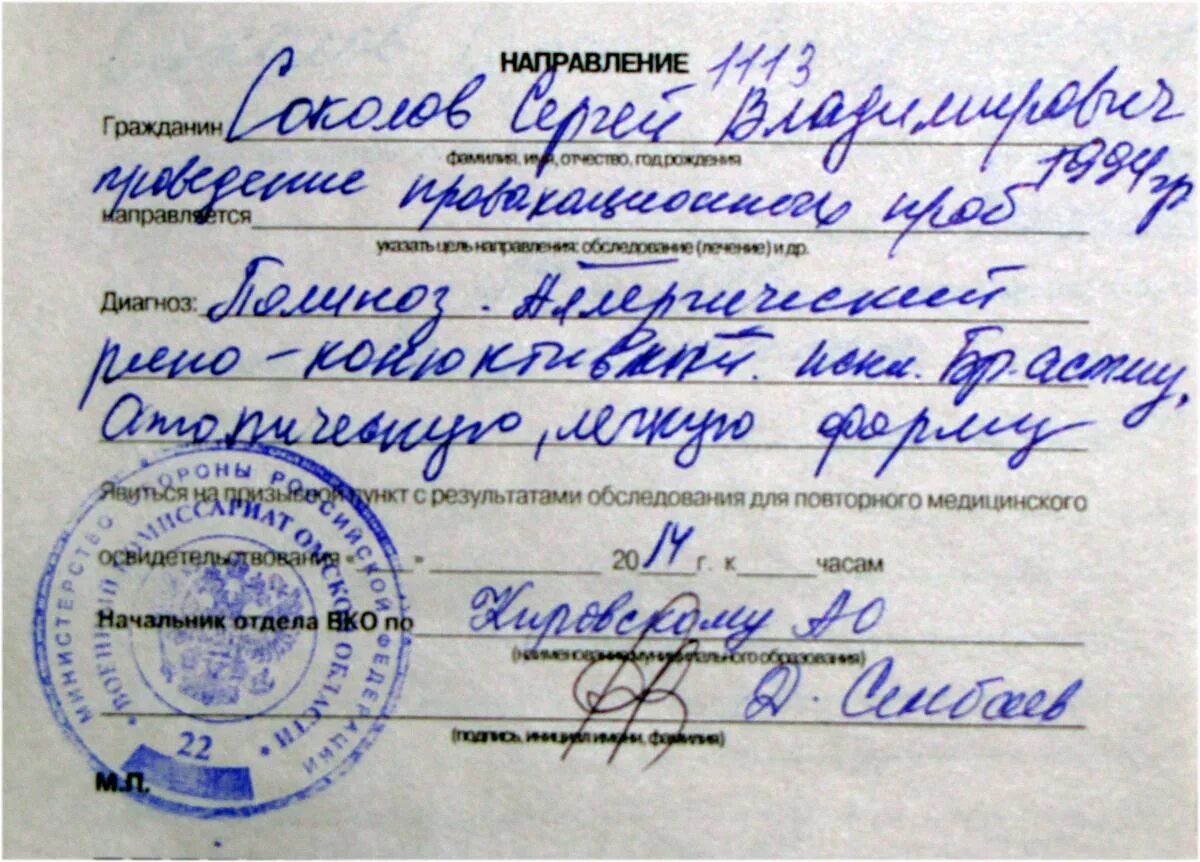 НАПРАВЛЕНИЕ 1113
Гражданин Соколов Сергей Владимирович
фамилия, имя, отчество, год рождения
1994 гр
проведение провакационных проб
направляется
указать цель направления: обследование (лечение) и др.
Диагноз: Полиноз. Аллергический
рино-конюктивит. искл. Бр. астму,
Атопическую, легкую форму
Явиться на призывной пункт с результатами обследования для повторного медицинского
освидетельствования « » 2014 г. к часам
Начальник отдела ВКО по Кировскому АО
(наименование муниципального образования)
Д. Сембаев
(подпись, инициал имени, фамилия)
М.П.
МИНИСТЕРСТВО ОБОРОНЫ РОССИЙСКОЙ ФЕДЕРАЦИИ
* ВОЕННЫЙ КОМИССАРИАТ ОМСКОЙ ОБЛАСТИ *
22